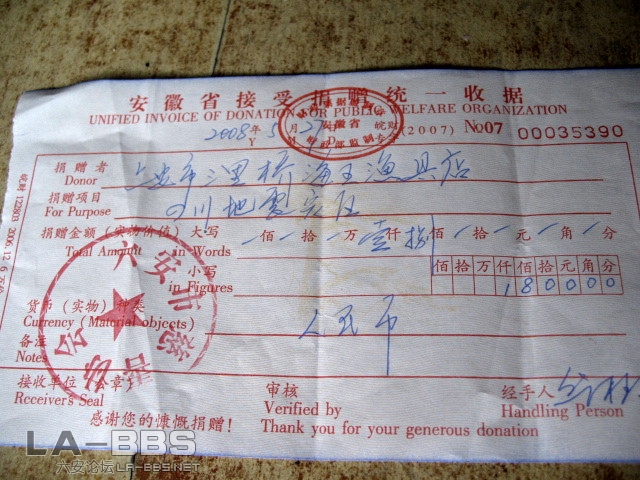 安徽省接受捐赠统一收据
UNIFIED INVOICE OF DONATION FOR PUBLIC WELFARE ORGANIZATION
2008年 5月 27日 皖财 (2007) No07 00035390
安徽省
捐赠者 六安市三里桥海王渔具店
Donor
捐赠项目 四川地震灾区
For Purpose
捐赠金额(实物价值) 大写 佰 拾 万 壹仟捌佰 拾 元 角 分
Total Amount in Words
小写 佰拾万仟佰拾元角分
in Figures 180000
货币(实物)种类 人民币
Currency (Material objects)
备注
Notes
六安市慈善协会
接收单位(公章) 审核 经手人
Rcceiver's Seal Verified by Handling Person
感谢您的慷慨捐赠! Thank you for your generous donation
LA-BBS
六安论坛LA-BBS.NET